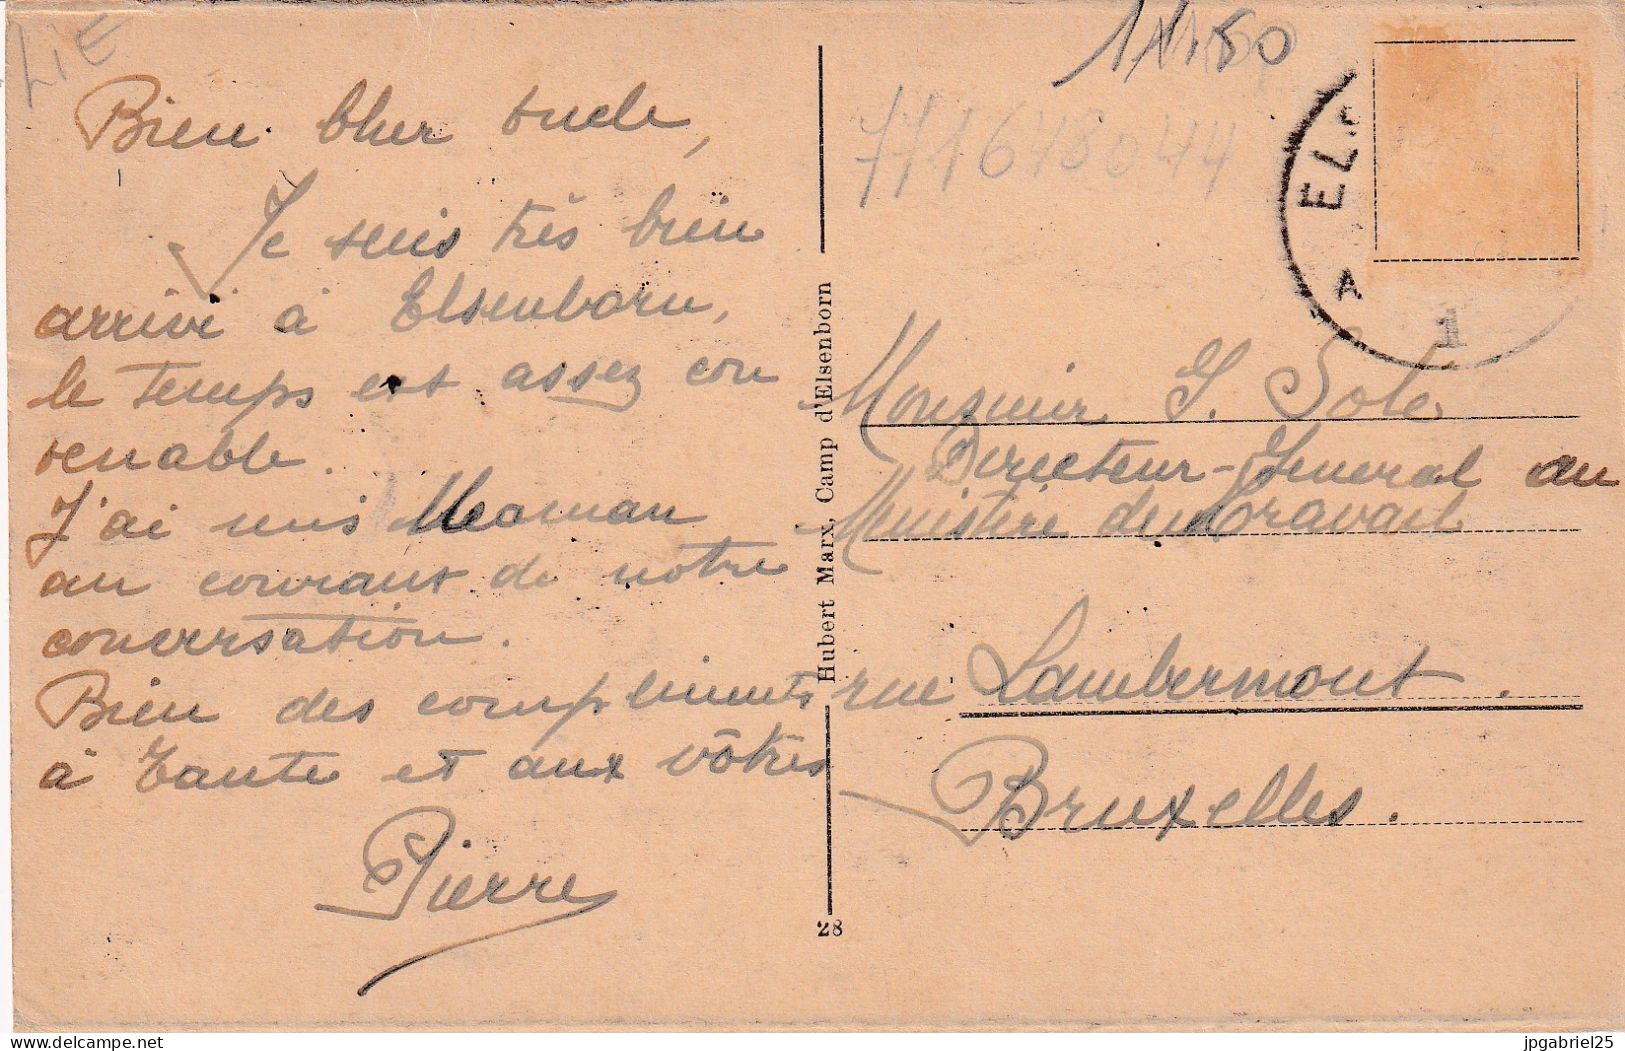 LIE
Bien Cher oncle,
Je suis très bien
arrivé à Elsenborn,
le temps est assez con
venable.
J'ai mis Maman
au courant de notre
conversation.
Bien des compliments
à Tante et aux vôtres
Pierre
Hubert Marx, Camp d'Elsenborn
28
771648044
ELS
A
1
Monsieur
Directeur-General au
Ministère du Travail
rue Lambermont.
Bruxelles.
jpgabriel25